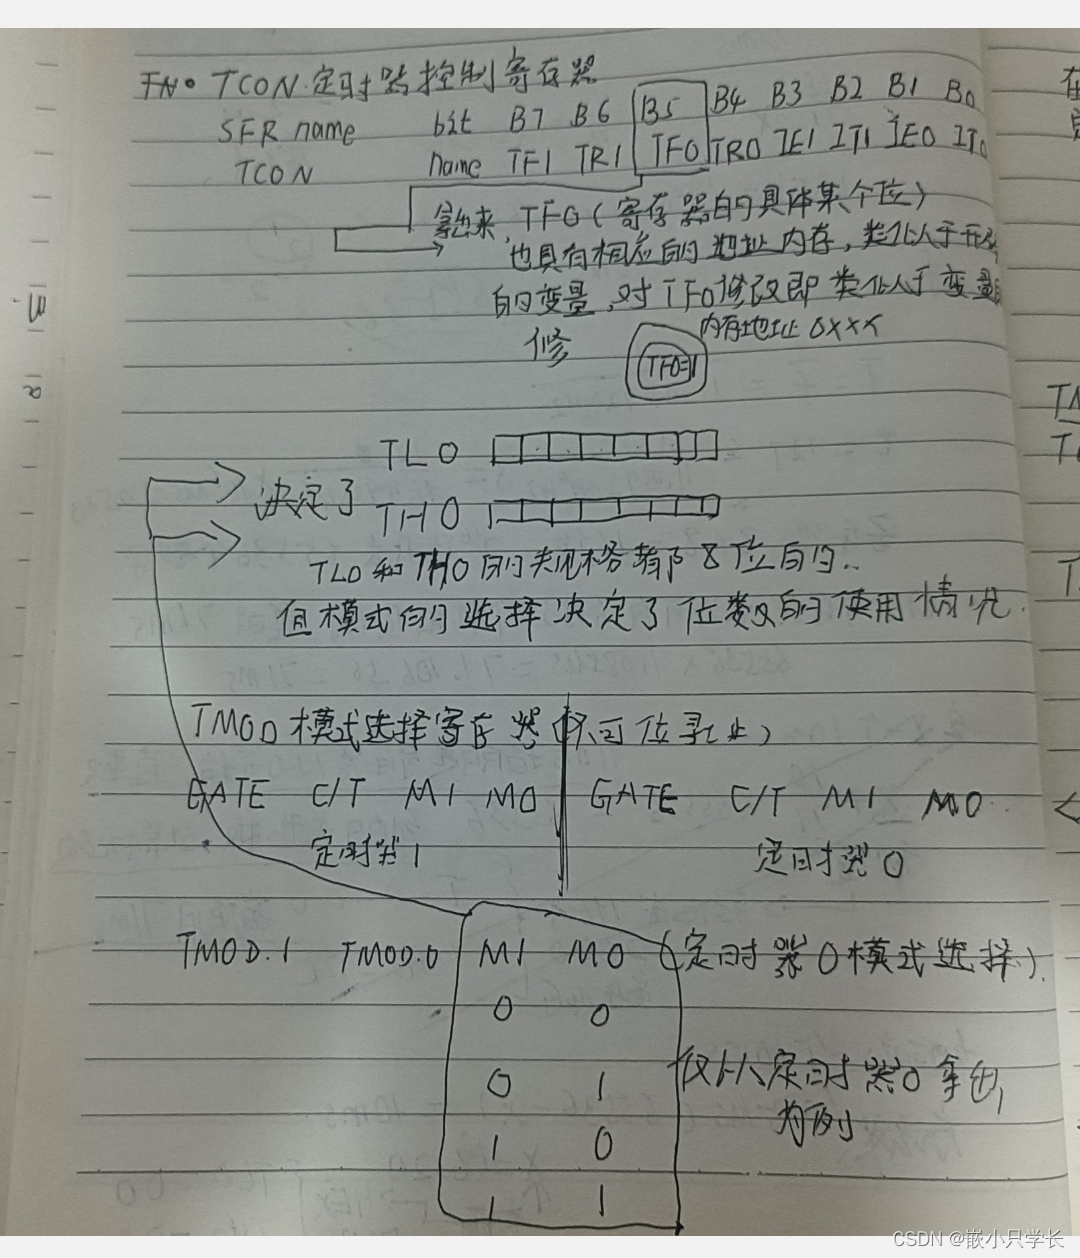 TCON 定时器控制寄存器
SFR name bit B7 B6 B5 B4 B3 B2 B1 B0
TCON name TF1 TR1 TF0 TR0 IE1 IT1 IE0 IT0
拿出来, TF0(寄存器的具体某个位)
也具有相应的地址内存, 类似于
的变量, 对TF0修改即类似于变量
修
内存地址 0XXX
TF0=1
TL0
决定了
TH0
TL0和TH0的规格都 8位的..
但模式的选择决定了位数的使用情况.
TMOD模式选择寄存器(不可位寻址)
GATE C/T M1 M0 GATE C/T M1 M0
定时器1 定时器0
TMOD.1 TMOD.0 M1 M0 (定时器0模式选择).
0 0
0 1 仅以定时器0拿出,
为例
1 0
1 1
CSDN @嵌小只学长